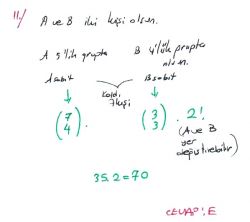 11//
A ve B iki kişi olsun.
A 5'lik grupta B 4'lük grupta olsun.
A sabit B sabit
kaldı 7 kişi
(7 4) . (3 3) . 2!
(A ve B yer değiştirebilir)
35.2=70
CEVAP: E